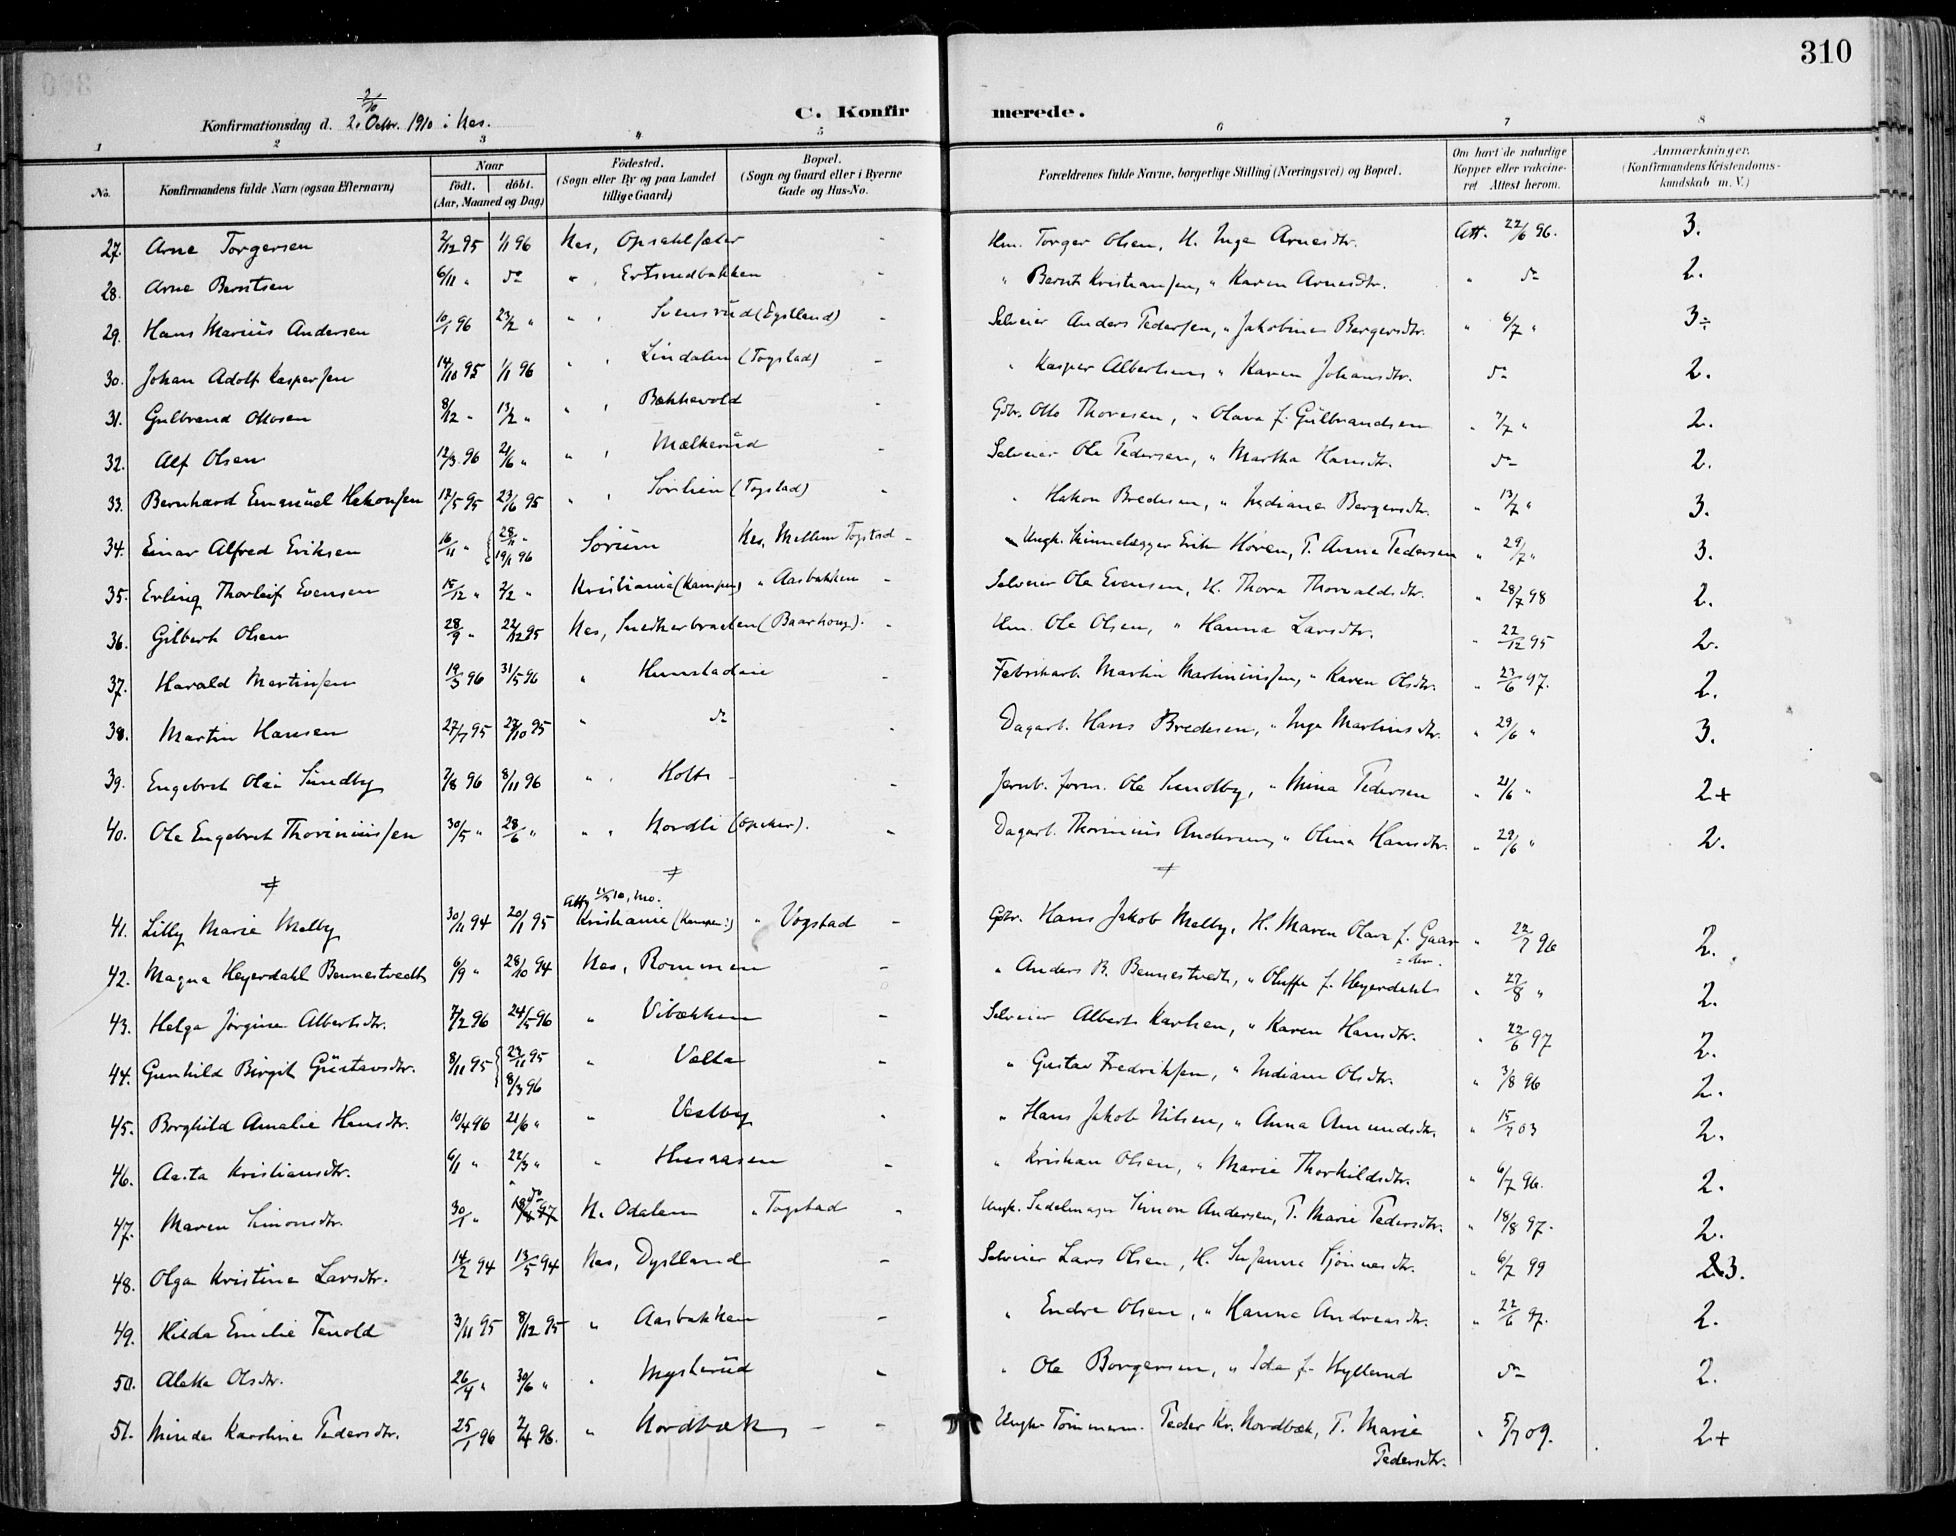 310
2/10
Konfirmationsdag d. 2. Octbr. 1910 i Nes.
C. Konfirmerede.
1 2 3 " 5 6 7 8
No. Konfirmandens fulde Navn (ogsaa Efternavn) Naar födt. döbt. (Aar, Maaned og Dag) Födested. (Sogn eller By og paa Landet tillige Gaard) Bopæl. (Sogn og Gaard eller i Byerne Gade og Hus-No. Forældrenes fulde Navne, borgerlige Stilling (Næringsvei) og Bopæl. Om havt de naturlige Kopper eller vakcineret. Attest herom. Anmærkninger. (Konfirmandens Kristendomskundskab m. V.)
27. Arne Torgersen 2/12 95 1/1 96 Nes, Opsahlsæter - Hm. Torger Olsen, H. Inga Arnesdtr. Att. 22/6 96. 3.
28. Arne Berntsen 6/11 " do " , - " Bernt Kristiansen, " Karen Arnesdtr. " do 2.
29. Hans Marius Andersen 10/1 96 23/2 " " , Svensrud (Dylland) - Selveier Anders Pedersen, " Jakobine Bergersdtr. " 6/7 " 3÷
30. Johan Adolf Kaspersen 14/10 95 1/1 96 " , Lindalen (Togstad) - " Kasper Albertsen, " Karen Johansdtr. do 2.
31. Gulbrand Ottosen 8/12 " 13/2 " " , Bækkevold - Gdbr. Otto Thoresen, " Olava f. Gulbrandsen " 7/7 " 2.
32. Alf Olsen 12/3 96 21/6 " " , Mælkerud - Selveier Ole Pedersen, " Martha Hansdtr. do 2.
33. Bernhard Emanuel Hakonsen 12/5 95 23/6 95 " , Sørlien (Togstad) - " Hakon Bredesen, " Indiana Bergersdtr. " 13/7 " 3.
34. Einar Alfred Eriksen 16/11 " { 28/11 " 19/1 96 Sørum Nes, Mellem Togstad - Ungk. Erik Horen, P. Anna Pedersen " 29/7 " 3.
35. Erling Thorleif Evensen 15/12 " 2/2 " Kristiania (Kampen) " Aasbakken - Selveier Ole Evensen, H. Thora Thorvaldsdtr. " 28/7 98 2.
36. Gilbert Olsen 28/9 " 22/12 95 Nes, Snedkerbraaten (Baarhoug). - Hm. Ole Olsen, " Hanna Larsdtr. " 22/12 95 2.
37. Harald Martinsen 19/3 96 31/5 96 " Humstadeie - Fabrikarb. Martin Martiniussen, " Karen Olsdtr. " 23/6 97. 2.
38. Martin Hansen 27/7 95 27/10 95 " do - Dagarb. Hans Bredesen, " Inga Martinsdtr. " 29/6 " 3.
39. Engebret Olai Sundby 7/8 96 8/11 96 " , Holts - Jernb. form. Ole Sundby, " Mina Pedersen " 21/6 " 2+
40. Ole Engebret Thoriniussen 30/5 " 28/6 " " , Nordli (Opaker). - Dagarb. Thorinius Andersen, " Olina Hansdtr. " 29/6 " 2.
41. Lilly Marie Melby 30/11 94 20/1 95 Kristiania (Kampen) " Vogstad - Gbr. Hans Jakob Melby, H. Maren Olava f. Gaar=der. " 22/7 96 2.
42. Magna Heyerdahl Bennestvedt 6/9 " 28/10 94 Nes, Rommen - " Anders B. Bennestvedt, " Oluffa f. Heyerdahl " 27/8 " 2.
43. Helga Jørgine Albertsdtr. 7/2 96 24/5 96 " Vibækken - Selveier Albert Karlsen, " Karen Hansdtr. " 22/6 97 2.
44. Gunhild Birgit Gustavsdtr. 8/11 95 { 23/11 95 8/3 96 " Velta - " Gustav Fredriksen, " Indiane Olsdtr. " 3/8 96 2.
45. Borghild Amalie Hansdtr. 10/4 96 21/6 " " Vestby - " Hans Jakob Nilsen, " Anna Amundsdtr. " 15/7 03 2.
46. Aasta Kristiansdtr. 6/1 " 22/3 " " Husaasen - " Kristian Olsen, " Marie Thorkildsdtr. " 6/7 96. 2.
47. Maren Simonsdtr. 30/1 " N. Odalen " Togstad - Ungk. Sadelmager Simon Andersen, P. Marie Pedersdtr. " 18/8 97. 2.
48. Olga Kristine Larsdtr. 14/2 94 13/5 94 Nes, Dylland - Selveier Lars Olsen, H. Susanna " 6/7 99 3.
49. Hilda Emilie Tenold 3/11 95 8/12 95 " Aasbakken - " Endre Olsen, " Hanna Andreasdtr. " 22/6 97. 2.
50. Aletta Olsdtr. 26/4 " 30/6 " " Mysterud - " Ole Borgersen, " Ida f. Hylland do 2.
51. Minda Karoline Pedersdtr. 25/1 96 2/4 96. " Nordbæk, - Ungk. Tømmerm. Peder Kr. Nordbæk, P. Marie Pedersdtr. " 5/7 09. 2+